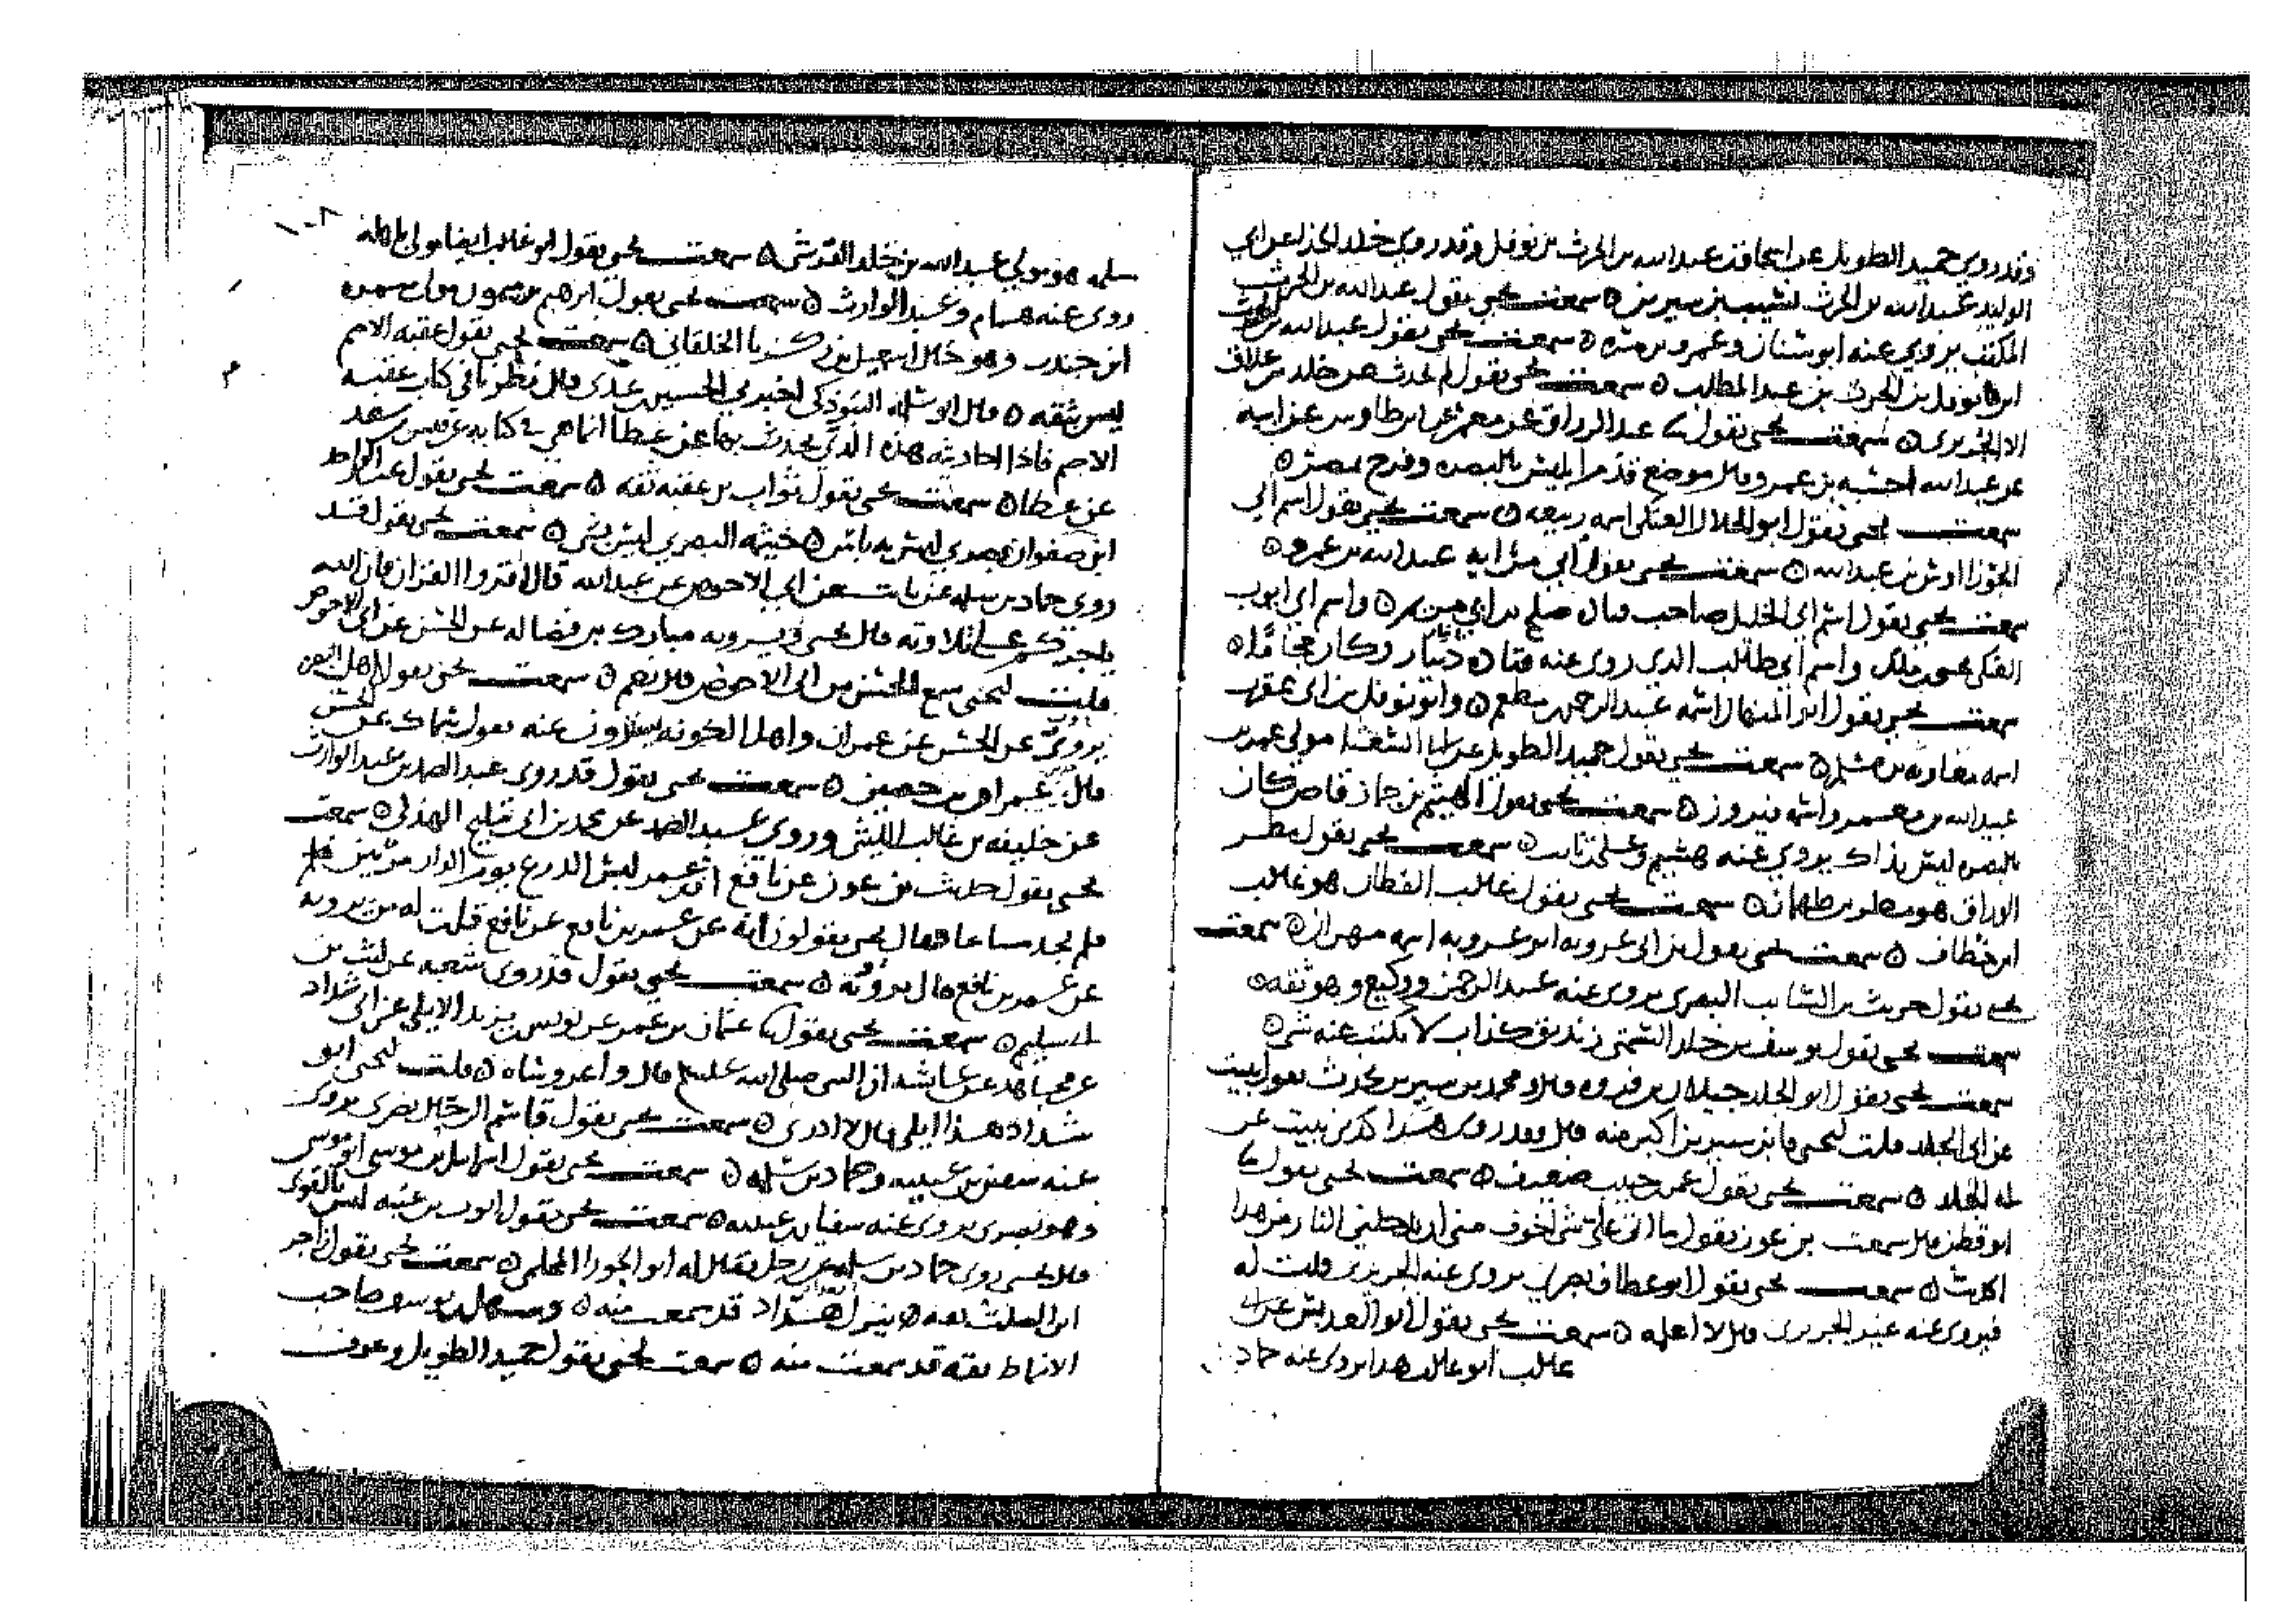 وقد روى حميد الطويل عن اسحاق بن عبد الله بن الحرث بن نوفل وقد روى خلد الحذا عن ابي
الوليد عبد الله بن الحرث نسيب بن سيرين ٥ سمعت يحيى يقول عبد الله بن الحرث
المكتب يروى عنه ابو سنان وعمرو بن مرة ٥ سمعت يحيى يقول عبد الله بن الحرث
ابن نوفل بن الحرث بن عبد المطلب ٥ سمعت يحيى يقول لم يحدث عن خلد بن علاق
الا الجريرى ٥ سمعت يحيى يقول نا عبد الرزاق عن معمر عن ابن طاوس عن ابيه
عن عبد الله احسبه بن عمرو وقال موضع قدم ابليس بالبصره وفرخ بمصر ٥
سمعت يحيى يقول ابو الحلال العتكى اسمه ربيعه ٥ سمعت يحيى يقول اسم ابي
الجوزا اوس بن عبد الله ٥ سمعت يحيى يقول ابي مرايه عبد الله بن عمرو ٥
سمعت يحيى يقول اسم ابي الخليل صاحب قتاده صلح بن ابي مريم ٥ واسم ابي ايوب
العتكى يحيى بن ملك واسم ابي طالب الذى روى عنه قتاده دينار وكان حجاما ٥
سمعت يحيى يقول ابو المنهال اسمه عبد الرحمن بن مطعم ٥ وابو نوفل بن ابي عقرب
اسمه معاويه بن مسلم ٥ سمعت يحيى يقول حميد الطويل عن ابي الشعثا مولى عمر بن
عبيد الله بن معمر واسمه فيروز ٥ سمعت يحيى يقول الهيثم بن جماز قاص كان
بالبصره ليس بذاك يروى عنه هشيم وعلي بن ثابت ٥ سمعت يحيى يقول مطر
الوراق هو مطر بن طهمان ٥ سمعت يحيى يقول غالب القطان هو غالب
ابن خطاف ٥ سمعت يحيى يقول بن ابي عروبه ابو عروبه اسمه مهران ٥ سمعت
يحيى يقول حريث بن السايب البصرى يروى عنه عبد الرحمن ووكيع وهو ثقه ٥
سمعت يحيى يقول يوسف بن خلد السمتى زنديق كذاب لا يكتب عنه شى ٥
سمعت يحيى يقول ابو الجلد جيلان بن فروه قال ومحمد بن سيرين يحدث
عن ابي الجلد قلت ليحيى فابن سيرين اكبر منه قال وقد روى
له الجلد ٥ سمعت يحيى يقول عمر بن حبيب ضعيف ٥ سمعت يحيى يقول نا
ابو قطن قال سمعت بن عون يقول ما انى على شى اخوف منى ان يدخلنى النار من هذا
الحديث ٥ سمعت يحيى يقول ابو عطاف بصرى يروى عنه الجريرى قلت له
فيروى عنه غير الجريرى قال لا اعلمه ٥ سمعت يحيى يقول ابو العدبس عن ابي
غالب ابو غالب هذا يروى عنه حماد بن
سلمه هو مولى عبد الله بن خلد القرشى ٥ سمعت يحيى يقول ابو غالب ايضا مولى باهله
روى عنه همام وعبد الوارث ٥ سمعت يحيى يقول ابرهيم بن ميمون مولى سمره
ابن جندب وهو خال اسمعيل بن زكريا الخلقانى ٥ سمعت يحيى يقول عقبه الاصم
ليس بثقه ٥ قال ابو سلمه التبوذكى اخبرنى الحسين بن عدى قال نظرنا فى كتاب عقبه
الاصم فاذا احاديثه هذه الذى يحدث بها عن عطا انما هى فى كتابه عن قيس بن سعد
عن عطا ٥ سمعت يحيى يقول ثواب بن عتبه ثقه ٥ سمعت يحيى يقول عبد الواحد
ابن صفوان بصرى ليس به باس ٥ خيثمه البصرى ليس بشى ٥ سمعت يحيى يقول قد
روى حماد بن سلمه عن ثابت عن ابي الاحوص عن عبد الله قال اقروا القران فان الله
ياجركم على تلاوته قال يحيى يرويه مبارك بن فضاله عن الحسن عن ابي الاحوص
قلت ليحيى سمع الحسن من ابي الاحوص قال نعم ٥ سمعت يحيى يقول اهل البصره
يروون عن الحسن عن عمران واهل الكوفه يقول سماك عن الحسن
قال عمران بن حصين ٥ سمعت يحيى يقول قد روى عبد الصمد بن عبد الوارث
عن خليفه بن غالب الليثى وروى عبد الصمد عن محمد بن ابي مليح الهذلى ٥ سمعت
يحيى يقول حديث بن عون عن نافع ان عمر لبس الدرع يوم الدار مرتين
قال يحيى يقولون انه عن عمر بن نافع عن نافع قلت له من يرويه
عن عمر بن نافع قال يروونه ٥ سمعت يحيى يقول قد روى شعبه عن ليث بن
ابي سليم ٥ سمعت يحيى يقول نا عثمان بن عمر عن يونس بن يزيد الايلى عن ابي شداد
عن مجاهد عن عايشه ان النبى صلى الله عليه قال ولو شاه ٥ قلت ليحيى ابو
شداد هذا ايلى قال لا ادرى ٥ سمعت يحيى يقول قاسم الرحال بصرى يروى
عنه سفين بن عيينه وحماد بن سلمه ٥ سمعت يحيى يقول اسرايل بن موسى ابو موسى
وهو بصرى يروى عنه سفيان بن عيينه ٥ سمعت يحيى يقول ايوب بن عتبه ليس بالقوى
قال يحيى روى حماد بن سلمه عن رجل يقال له ابو الجوزا المحلمى ٥ سمعت يحيى يقول زاجر
ابن الصلت ثقه ٥ ينزل قد سمعت منه ٥ وسهل بن يوسف صاحب
الانماط ثقه قد سمعت منه ٥ سمعت يحيى يقول حميد الطويل وعوف